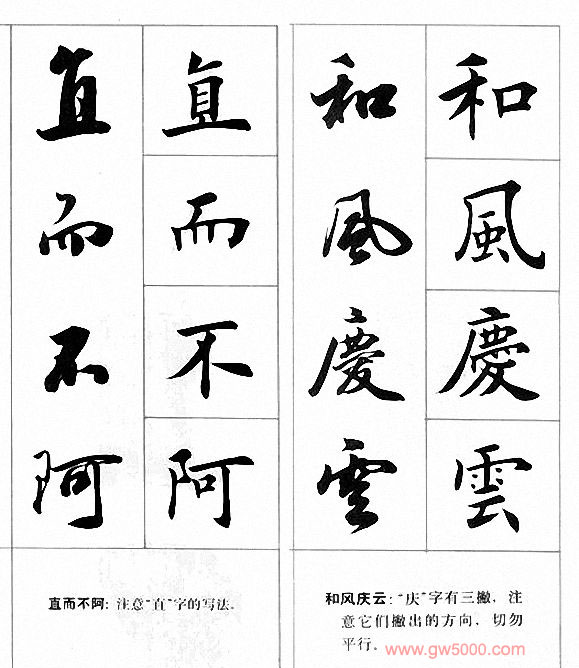 和風慶雲
和風慶雲
和风庆云：“庆”字有三撇，注
意它们撇出的方向，切勿
平行。
直而不阿
直而不阿
直而不阿：注意“直”字的写法。
www.gw5000.com